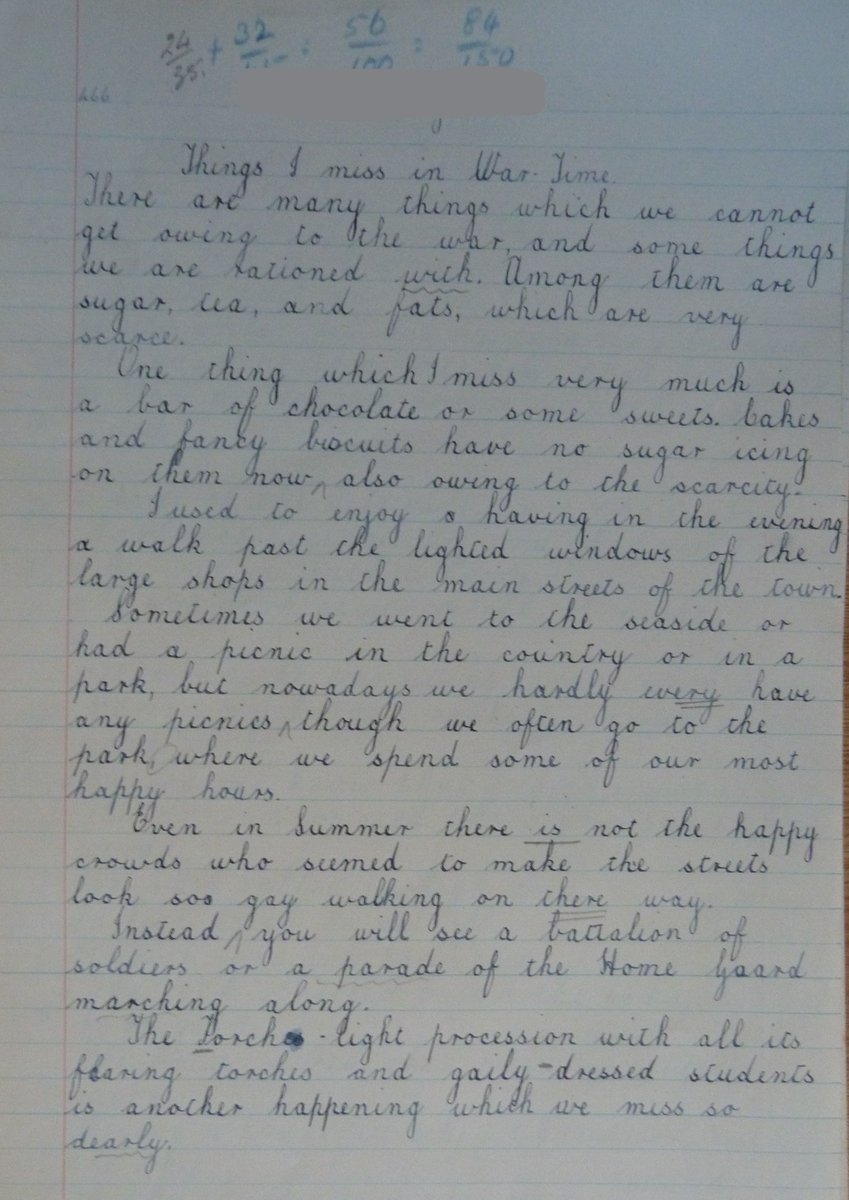 24/35 + 32/ : 56/100 : 84/150
466
Things I miss in War-Time.
There are many things which we cannot
get owing to the war, and some things
we are rationed with. Among them are
sugar, tea, and fats, which are very
scarce.
One thing which I miss very much is
a bar of chocolate or some sweets. Cakes
and fancy biscuits have no sugar icing
on them now, also owing to the scarcity.
I used to enjoy having in the evening
a walk past the lighted windows of the
large shops in the main streets of the town.
Sometimes we went to the seaside or
had a picnic in the country or in a
park, but nowadays we hardly every have
any picnics though we often go to the
park, where we spend some of our most
happy hours.
Even in Summer there is not the happy
crowds who seemed to make the streets
look soo gay walking on there way.
Instead you will see a battalion of
soldiers or a parade of the Home Gaard
marching along.
The Torch-light procession with all its
flaring torches and gaily-dressed students
is another happening which we miss so
dearly.